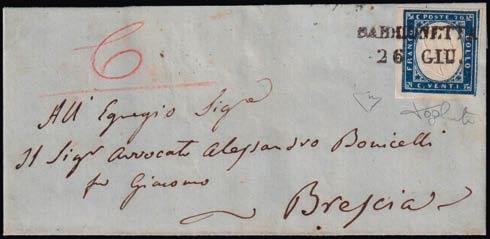 C
SABBIONETTA
26 GIU.
C. POSTE 20
FRANCO
BOLLO
C. VENTI
All' Egregio Sigr
Il Sigr Avvocato Alessandro Bonicelli
fu Giacomo
Brescia